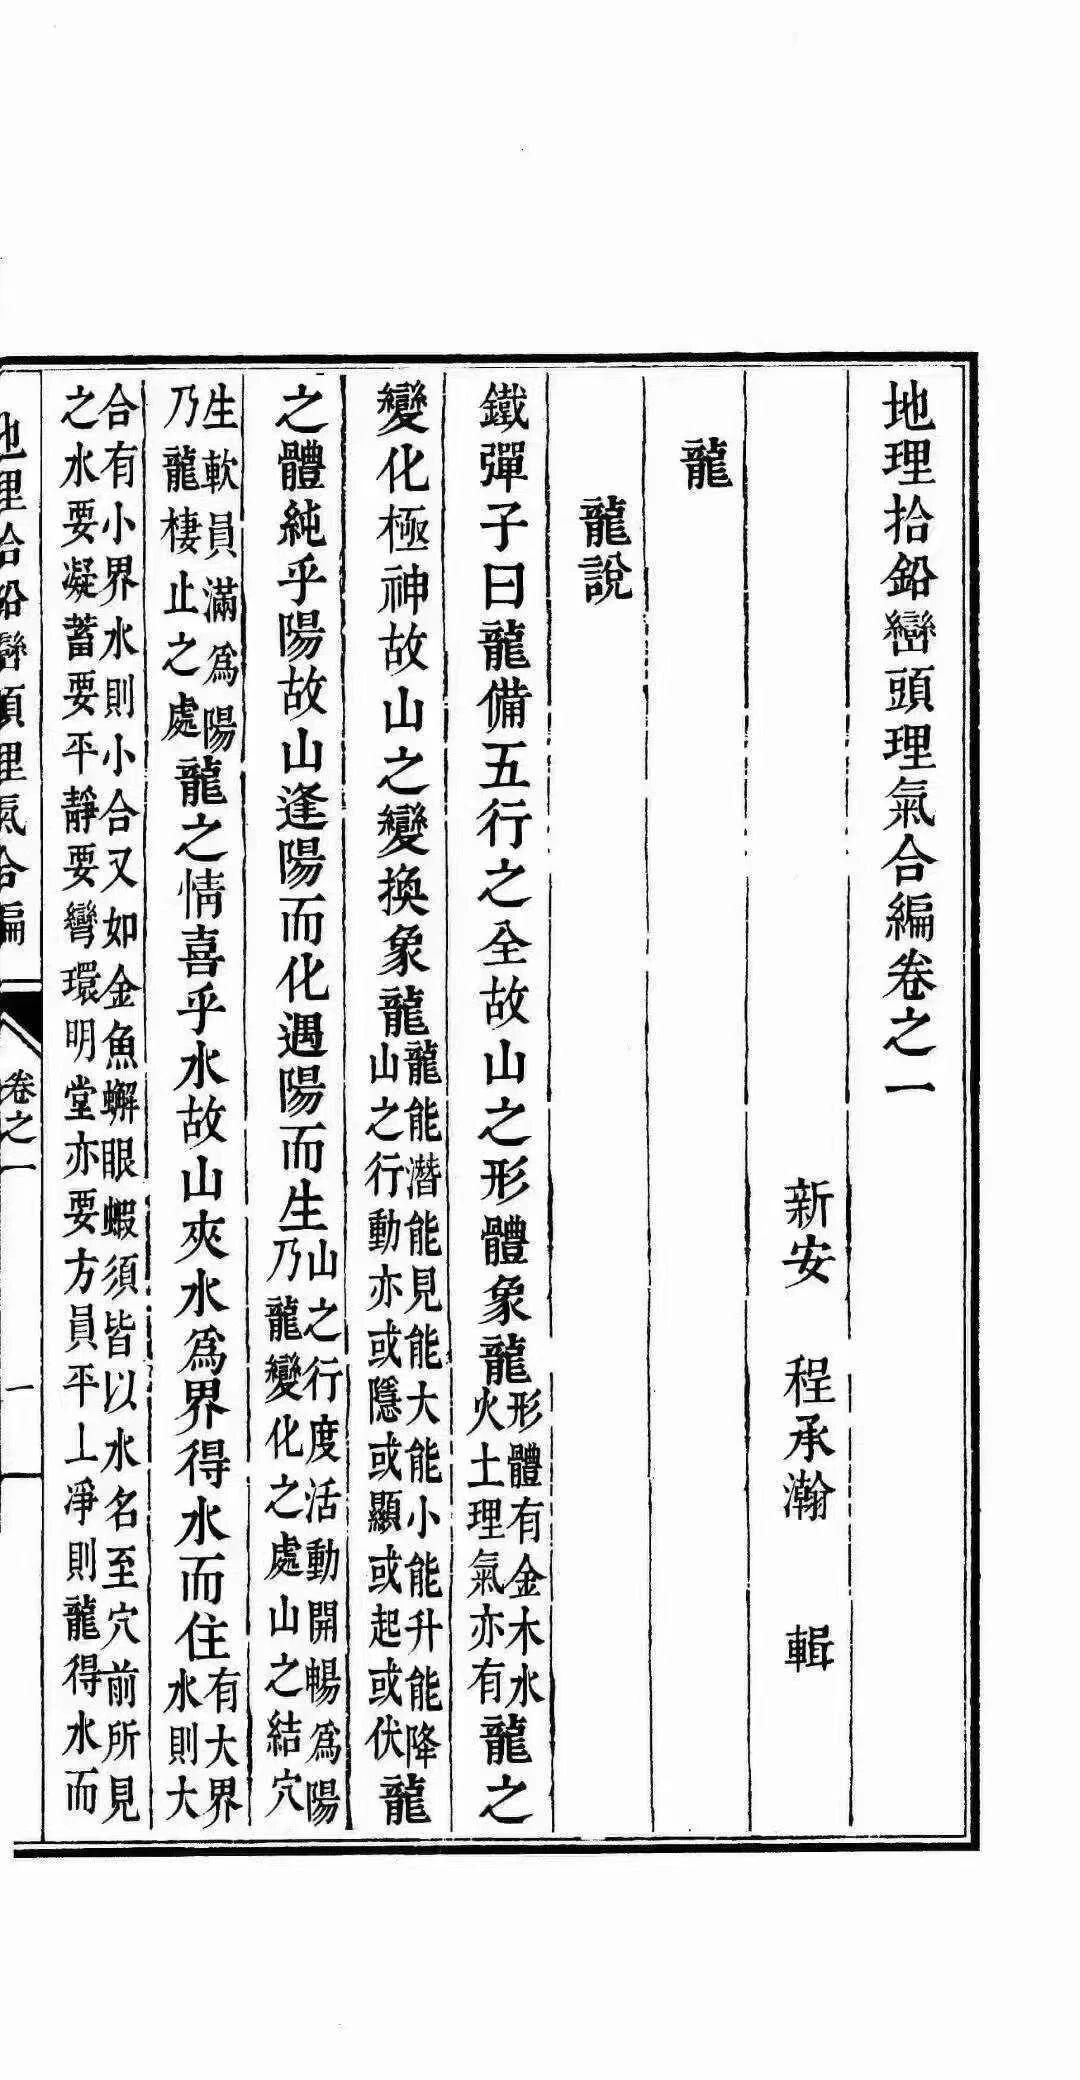 地理拾鉛巒頭理氣合編卷之一
新安　程承瀚　輯
龍
龍說
鐵彈子曰龍備五行之全故山之形體象龍形體有金木水火土理氣亦有龍之
變化極神故山之變換象龍龍能潛能見能大能小能升能降山之行動亦或隱或顯或起或伏龍
之體純乎陽故山逢陽而化遇陽而生山之行度活動開暢爲陽乃龍變化之處山之結穴
生軟員滿爲陽乃龍棲止之處龍之情喜乎水故山夾水爲界得水而住有大界水則大
合有小界水則小合又如金魚蠏眼蝦須皆以水名至穴前所見之水要凝蓄要平靜要彎環明堂亦要方員平凈則龍得水而
地理拾鉛巒頭理氣合編　卷之一　一